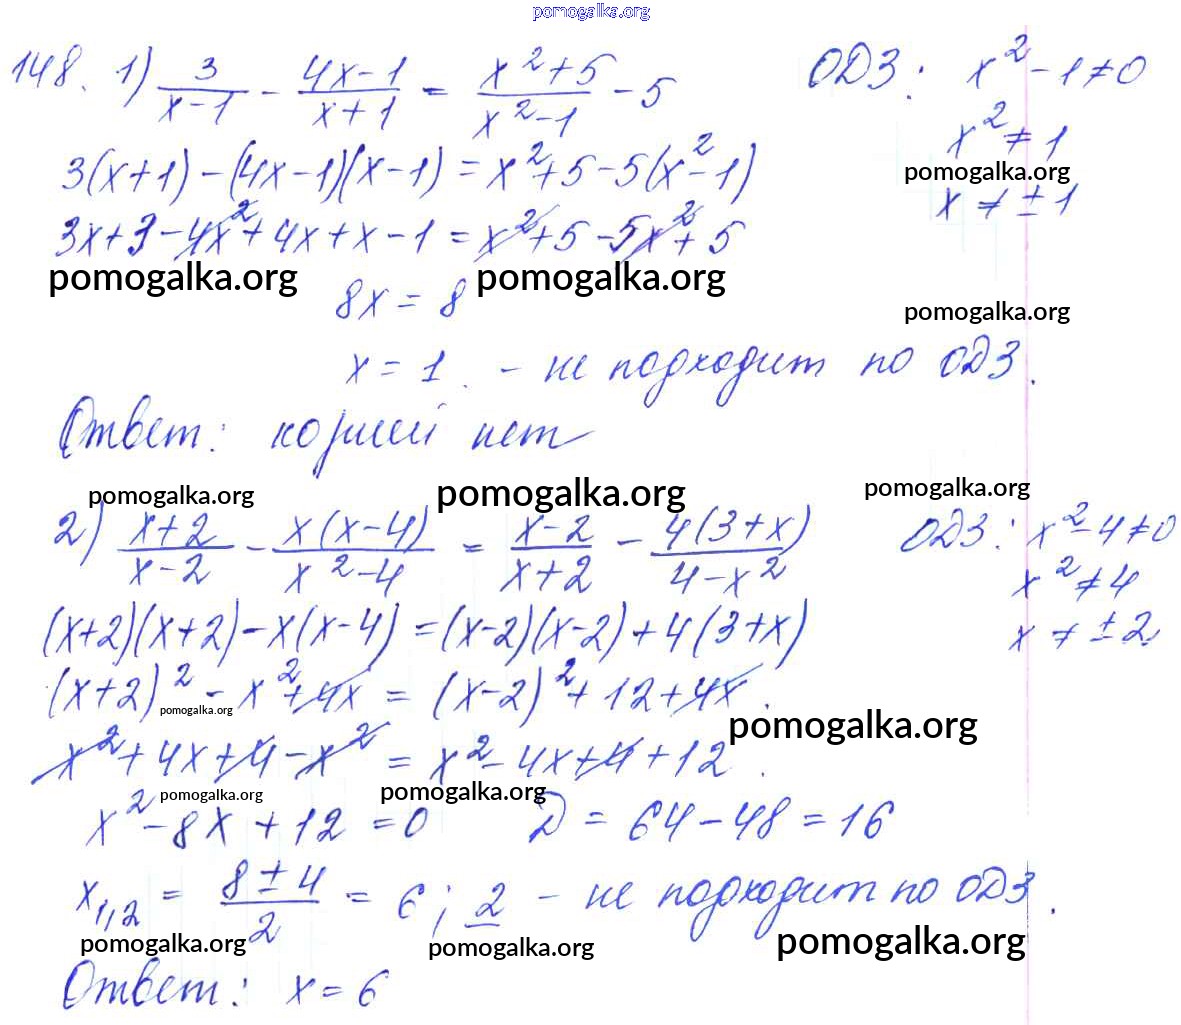 pomogalka.org
148. 1) 3/(x-1) - (4x-1)/(x+1) = (x²+5)/(x²-1) - 5 ОДЗ: x²-1≠0
x²≠1
pomogalka.org
3(x+1)-(4x-1)(x-1)=x²+5-5(x²-1)
x≠±1
3x+3-4x²+4x+x-1=x²+5-5x²+5
pomogalka.org pomogalka.org
8x=8
pomogalka.org
x=1. - не подходит по ОДЗ.
Ответ: корней нет
pomogalka.org pomogalka.org pomogalka.org
2) (x+2)/(x-2) - x(x-4)/(x²-4) = (x-2)/(x+2) - 4(3+x)/(4-x²) ОДЗ: x²-4≠0
x²≠4
(x+2)(x+2)-x(x-4)=(x-2)(x-2)+4(3+x)
x≠±2
(x+2)²-x²+4x=(x-2)²+12+4x.
pomogalka.org pomogalka.org
x²+4x+4-x²=x²-4x+4+12.
pomogalka.org pomogalka.org
x²-8x+12=0 D=64-48=16
x1,2 = (8±4)/2 = 6; 2 - не подходит по ОДЗ.
pomogalka.org pomogalka.org pomogalka.org
Ответ: x=6